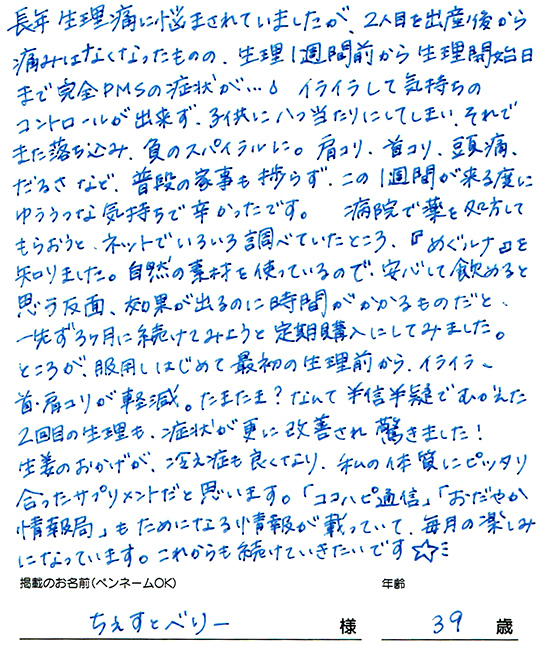 長年生理痛に悩まされていましたが、2人目を出産後から
痛みはなくなったものの、生理1週間前から生理開始日
まで完全PMSの症状が…。イライラして気持ちの
コントロールが出来ず、子供に八つ当たりにしてしまい、それで
また落ち込み、負のスパイラルに。肩コリ、首コリ、頭痛、
だるさなど、普段の家事も捗らず、この1週間が来る度に
ゆううつな気持ちで辛かったです。 病院で薬を処方して
もらおうと、ネットでいろいろ調べていたところ、『めぐルナ』を
知りました。自然の素材を使っているので、安心して飲めると
思う反面、効果が出るのに時間がかかるものだと、
一先ず3ヶ月に続けてみようと定期購入にしてみました。
ところが、服用しはじめて最初の生理前から、イライラ、
首・肩コリが軽減。たまたま?なんて半信半疑でむかえた
2回目の生理も、症状が更に改善され驚きました!
生姜のおかげが、冷え症も良くなり、私の体質にピッタリ
合ったサプリメントだと思います。「ココハピ通信」「おだやか
情報局」もためになる情報が載っていて、毎月の楽しみ
になっています。これからも続けていきたいです☆ミ
掲載のお名前(ペンネームOK) 年齢
ちぇすとべりー 様 39 歳